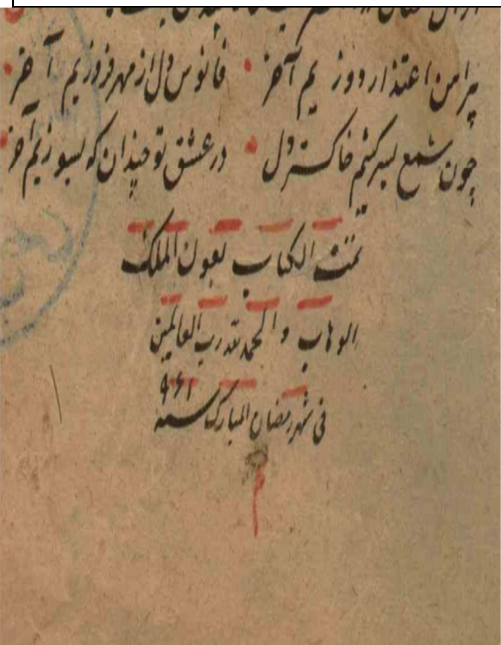 پیرامن اعتذار دوزیم آخر • فانوس دل از مهر فروزیم آخر •
چون شمع بسر کشیم خاکستر دل • در عشق تو چندان که بسوزیم آخر •
تمت الکتاب بعون الملک
الوهاب و الحمد لله رب العالمین
فی شهر رمضان المبارک سنه ۹۶۱
م